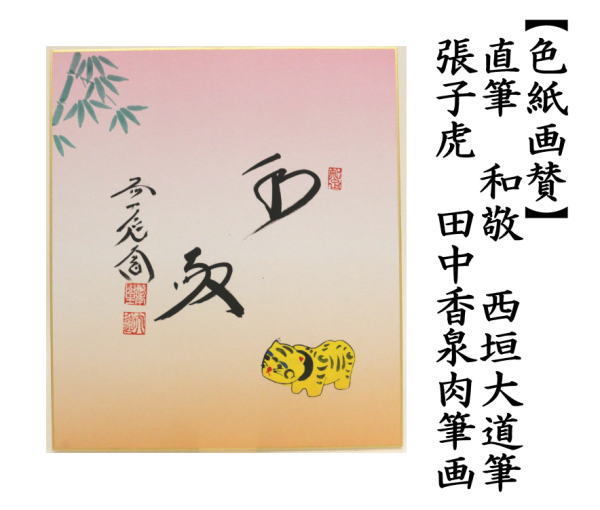 【色紙画賛】
直筆 和敬 西垣大道筆
張子虎 田中香泉肉筆画
和敬